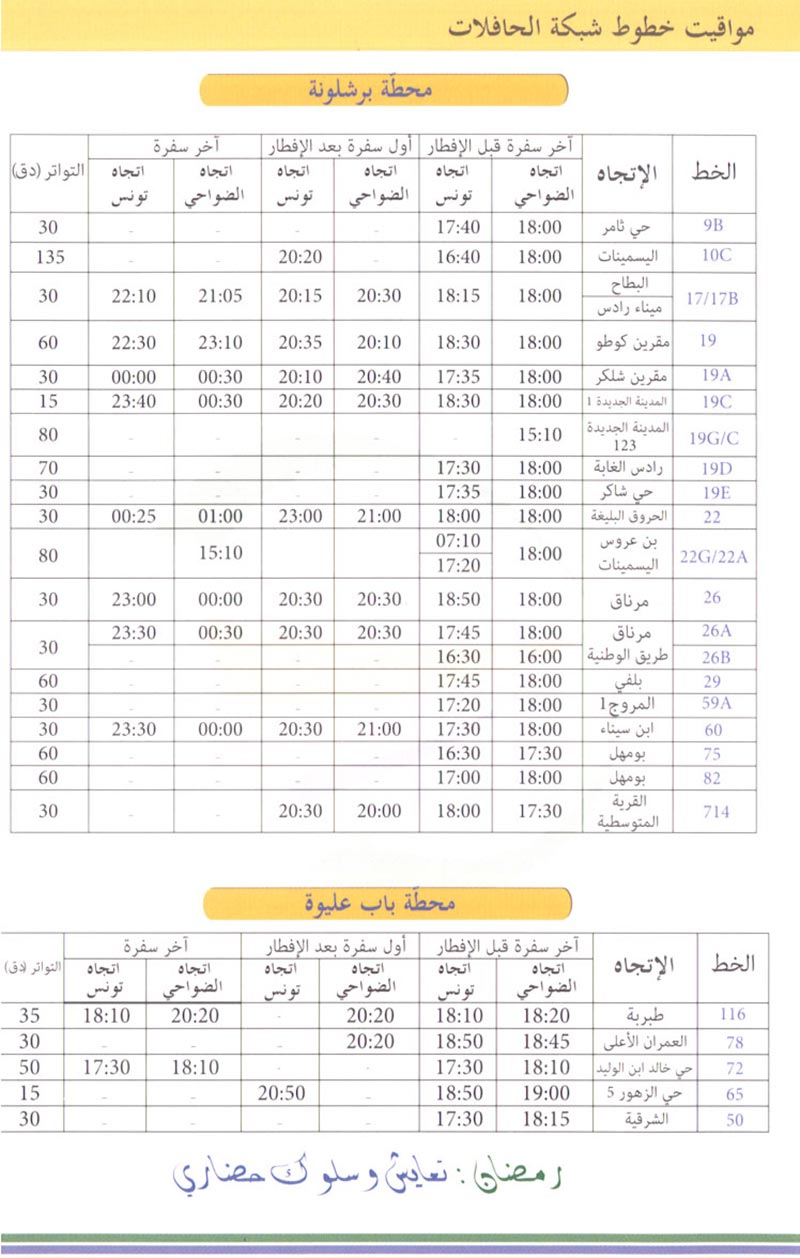 مواقيت خطوط شبكة الحافلات
محطّة برشلونة
الخط | الإتجاه | آخر سفرة قبل الإفطار | أول سفرة بعد الإفطار | آخر سفرة | التواتر (دق)
اتجاه الضواحي | اتجاه تونس | اتجاه الضواحي | اتجاه تونس | اتجاه الضواحي | اتجاه تونس
9B | حي ثامر | 18:00 | 17:40 | - | - | - | - | 30
10C | اليسمينات | 18:00 | 16:40 | - | 20:20 | - | - | 135
17/17B | البطاح / ميناء رادس | 18:00 | 18:15 | 20:30 | 20:15 | 21:05 | 22:10 | 30
19 | مقرين كوطو | 18:00 | 18:30 | 20:10 | 20:35 | 23:10 | 22:30 | 60
19A | مقرين شلكر | 18:00 | 17:35 | 20:40 | 20:10 | 00:30 | 00:00 | 30
19C | المدينة الجديدة 1 | 18:00 | 18:30 | 20:30 | 20:20 | 00:30 | 23:40 | 15
19G/C | المدينة الجديدة 123 | 15:10 | - | - | - | - | - | 80
19D | رادس الغابة | 18:00 | 17:30 | - | - | - | - | 70
19E | حي شاكر | 18:00 | 17:35 | - | - | - | - | 30
22 | الحروق البليغة | 18:00 | 18:00 | 21:00 | 23:00 | 01:00 | 00:25 | 30
22G/22A | بن عروس اليسمينات | 18:00 | 07:10 / 17:20 | | | 15:10 | | 80
26 | مرناق | 18:00 | 18:50 | 20:30 | 20:30 | 00:00 | 23:00 | 30
26A | مرناق | 18:00 | 17:45 | 20:30 | 20:30 | 00:30 | 23:30 | 30
26B | طريق الوطنية | 16:00 | 16:30 | - | - | - | -
29 | بلفي | 18:00 | 17:45 | - | - | - | - | 60
59A | المروج1 | 18:00 | 17:20 | - | - | - | - | 30
60 | ابن سيناء | 18:00 | 17:30 | 21:00 | 20:30 | 00:00 | 23:30 | 30
75 | بومهل | 17:30 | 16:30 | - | - | - | - | 60
82 | بومهل | 18:00 | 17:00 | - | - | - | - | 60
714 | القرية المتوسطية | 17:30 | 18:00 | 20:00 | 20:30 | - | - | 30
محطّة باب عليوة
الخط | الإتجاه | آخر سفرة قبل الإفطار | أول سفرة بعد الإفطار | آخر سفرة | التواتر (دق)
اتجاه الضواحي | اتجاه تونس | اتجاه الضواحي | اتجاه تونس | اتجاه الضواحي | اتجاه تونس
116 | طبربة | 18:20 | 18:10 | 20:20 | - | 20:20 | 18:10 | 35
78 | العمران الأعلى | 18:45 | 18:50 | 20:20 | - | - | - | 30
72 | حي خالد ابن الوليد | 18:10 | 17:30 | - | - | 18:10 | 17:30 | 50
65 | حي الزهور 5 | 19:00 | 18:50 | - | 20:50 | - | - | 15
50 | الشرقية | 18:15 | 17:30 | - | - | - | - | 30
رمضان : تعايش وسلوك حضاري